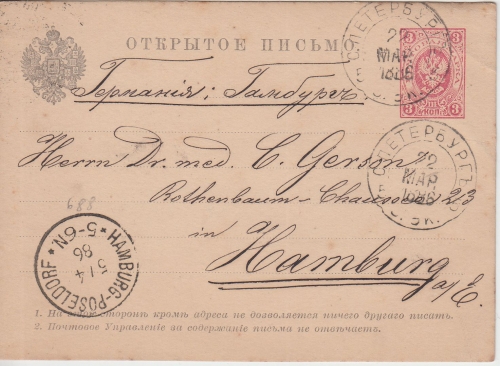 ОТКРЫТОЕ ПИСЬМО.
С.ПЕТЕРБУРГЪ
22
МАР
1886
3
3
3
3
Германія; Гамбургъ
Herrn Dr. med. C. Gerson
С.ПЕТЕРБУРГЪ
22
МАР
1886
Rothenbaum-Chaussee 2/3
in
Hamburg
a/E.
688
HAMBURG-POSELDORF
5/4
86
5-6N.
1. На этой сторонѣ кромѣ адреса не дозволяется ничего другаго писать.
2. Почтовое Управленіе за содержаніе письма не отвѣчаетъ.